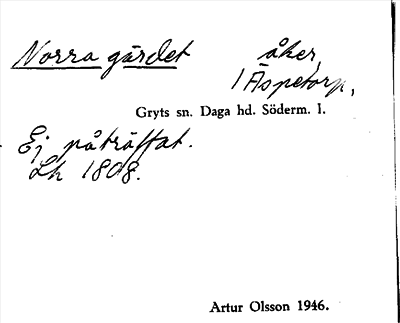 Norra gärdet åker,
1 Äspetorp,
Gryts sn. Daga hd. Söderm. l.
Ej påträffat.
Lh 1808.
Artur Olsson 1946.